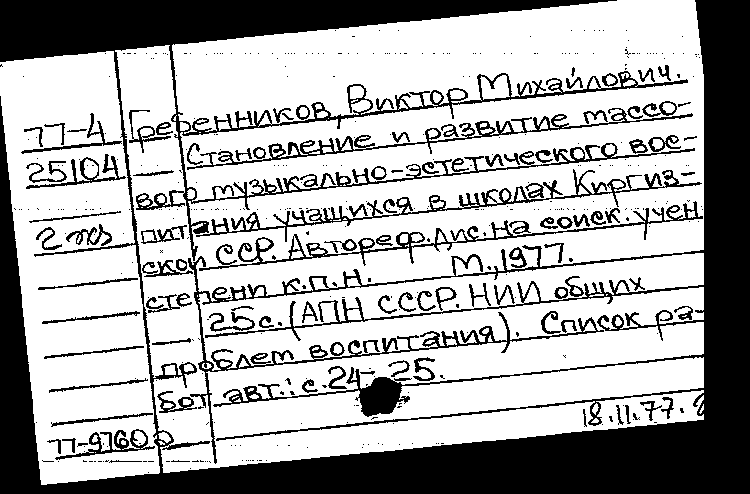 77-4 Гребенников, Виктор Михайлович.
25104 Становление и развитие массо-
вого музыкально-эстетического вос-
2 экз питания учащихся в школах Киргиз-
ской ССР. Автореф. дис. на соиск. учен
степени к.п.н. М., 1977.
25 с. (АПН СССР. НИИ общих
проблем воспитания). Список ра-
бот авт.: с. 24-25.
77-97600 18.11.77.